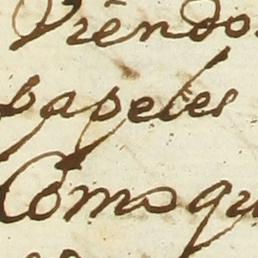 Viendo
papeles
Como qu